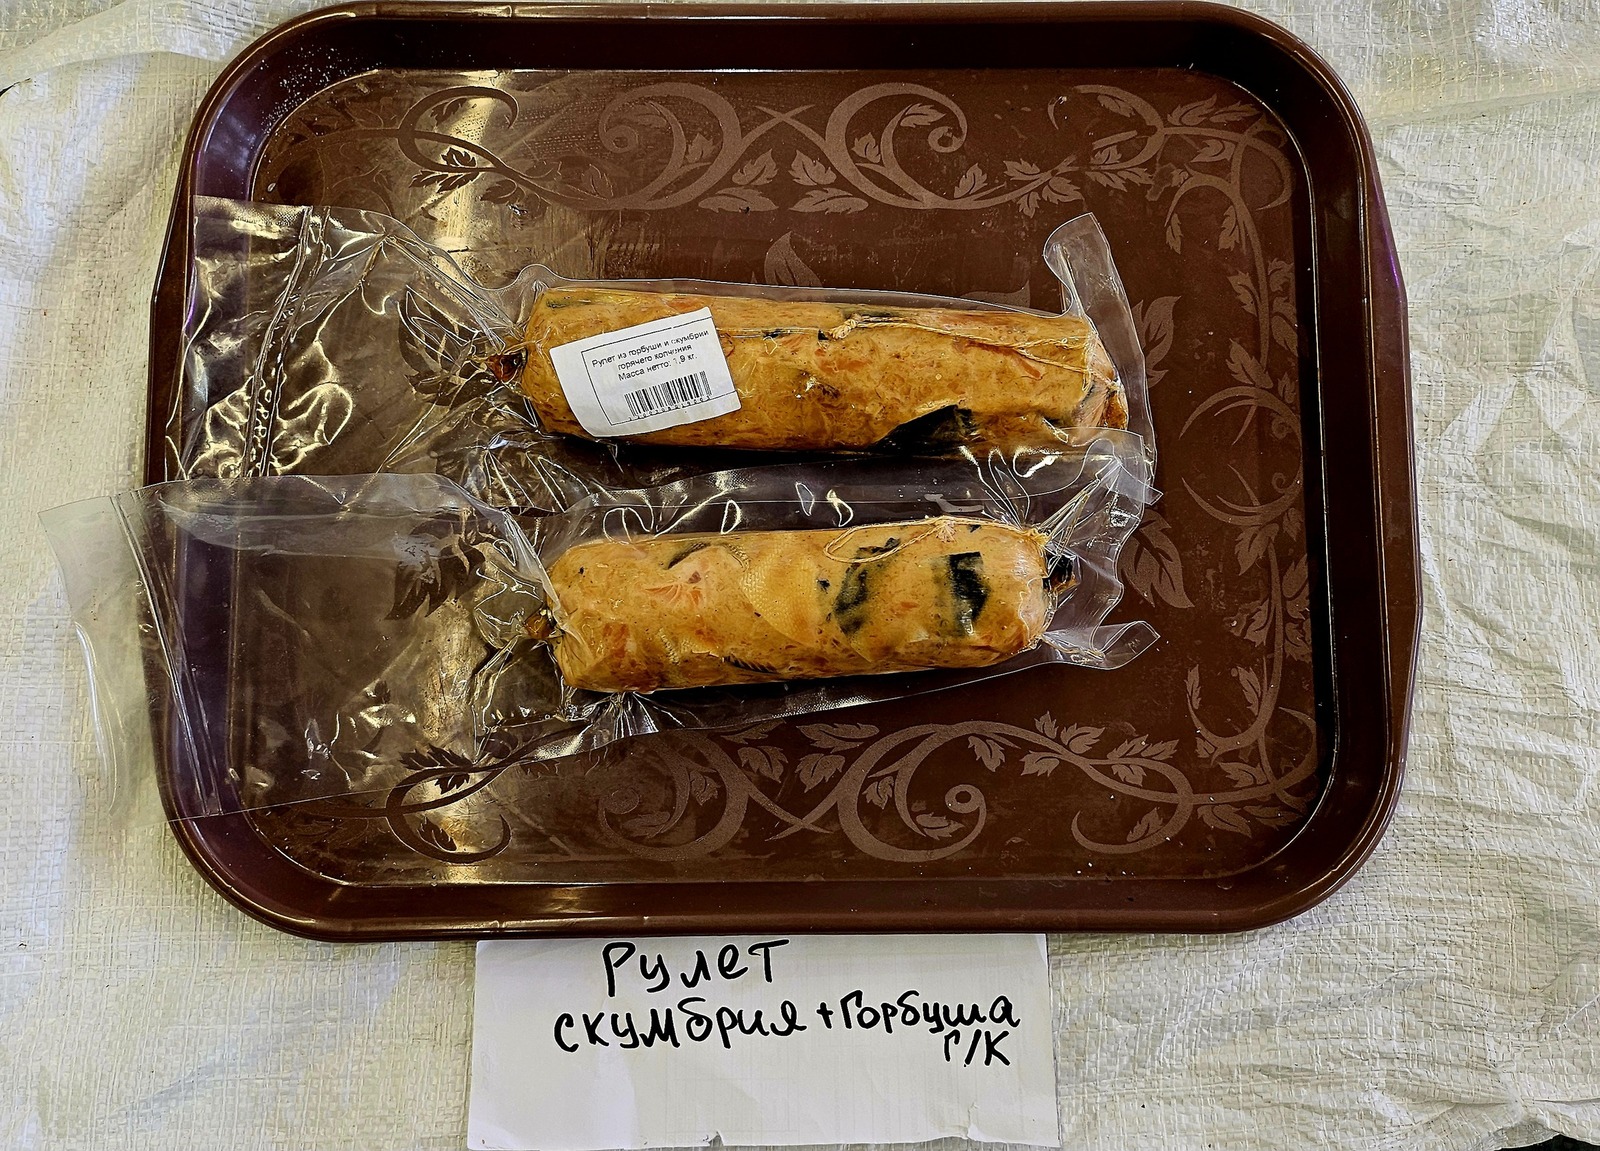 Рулет из горбуши и скумбрии
горячего копчения
Масса нетто: 1,9 кг.
Рулет
скумбрия + Горбуша
Г/К